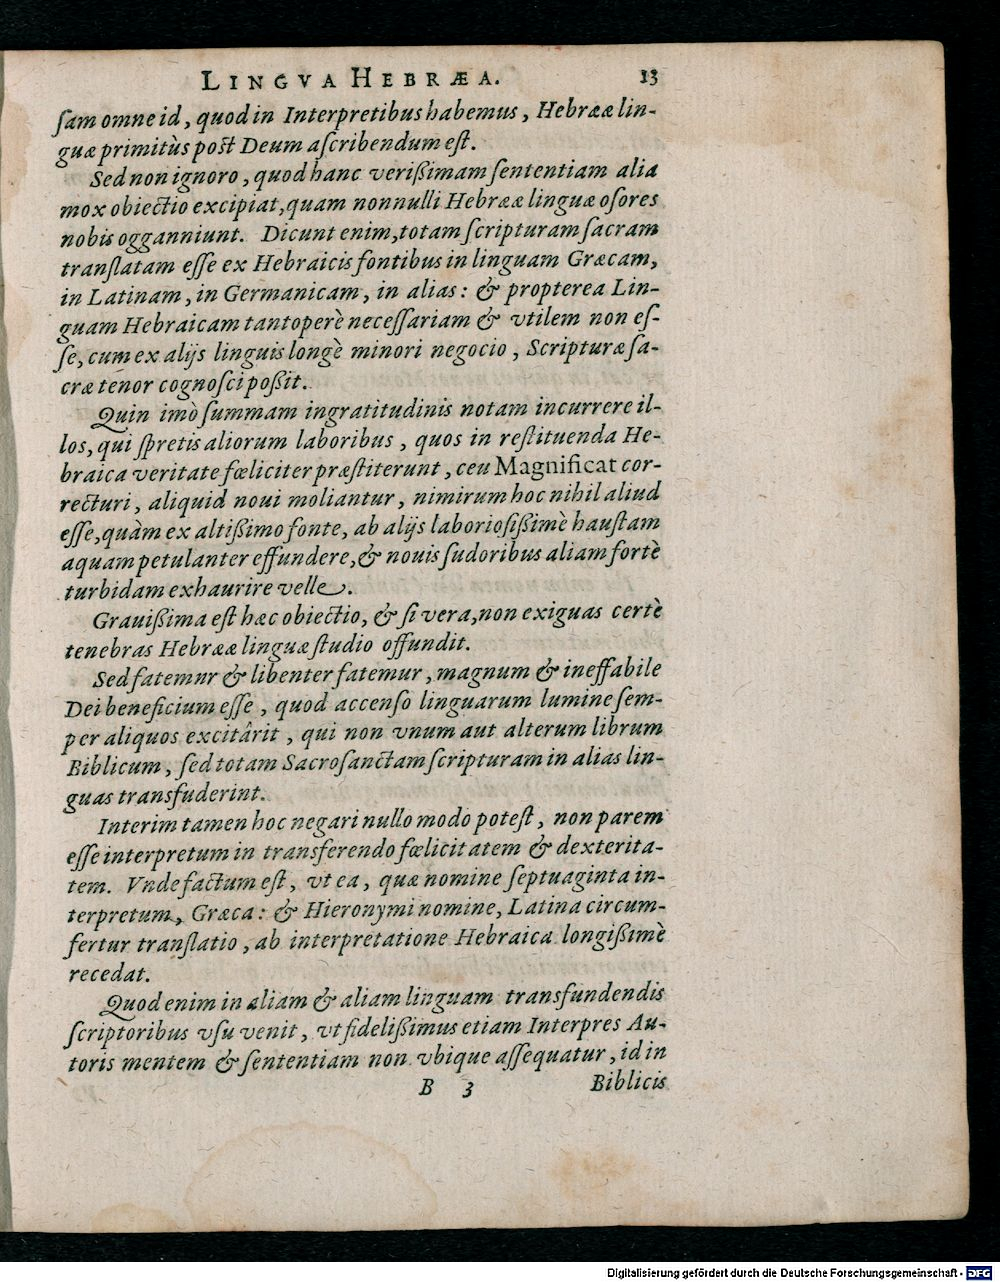 LINGVA HEBRÆA. 13
ſam omne id, quod in Interpretibus habemus, Hebrææ lin-
guæ primitùs poſt Deum aſcribendum eſt.
Sed non ignoro, quod hanc verißimam ſententiam alia
mox obiectio excipiat, quam nonnulli Hebrææ linguæ oſores
nobis ogganniunt. Dicunt enim, totam ſcripturam ſacram
translatam eſſe ex Hebraicis fontibus in linguam Græcam,
in Latinam, in Germanicam, in alias: & propterea Lin-
guam Hebraicam tantoperè neceſſariam & vtilem non eſ-
ſe, cum ex alijs linguis longè minori negocio, Scripturæ ſa-
cræ tenor cognoſci poßit.
Quin imò ſummam ingratitudinis notam incurrere il-
los, qui ſpretis aliorum laboribus, quos in reſtituenda He-
braica veritate fœliciter præſtiterunt, ceu Magnificat cor-
recturi, aliquid noui moliantur, nimirum hoc nihil aliud
eſſe, quàm ex altißimo fonte, ab alijs laborioſißimè hauſtam
aquam petulanter effundere, & nouis ſudoribus aliam fortè
turbidam exhaurire velle.
Grauißima eſt hæc obiectio, & ſi vera, non exiguas certè
tenebras Hebrææ linguæ ſtudio offundit.
Sed fatemnr & libenter fatemur, magnum & ineffabile
Dei beneficium eſſe, quod accenſo linguarum lumine ſem-
per aliquos excitârit, qui non vnum aut alterum librum
Biblicum, ſed totam Sacroſanctam ſcripturam in alias lin-
guas transfuderint.
Interim tamen hoc negari nullo modo poteſt, non parem
eſſe interpretum in transferendo fœlicitatem & dexterita-
tem. Vnde factum eſt, vt ea, quæ nomine ſeptuaginta in-
terpretum, Græca: & Hieronymi nomine, Latina circum-
fertur translatio, ab interpretatione Hebraica longißimè
recedat.
Quod enim in aliam & aliam linguam transfundendis
ſcriptoribus vſu venit, vt fidelißimus etiam Interpres Au-
toris mentem & ſententiam non vbique aſſequatur, id in
B 3 Biblicis
Digitalisierung gefördert durch die Deutsche Forschungsgemeinschaft - DFG